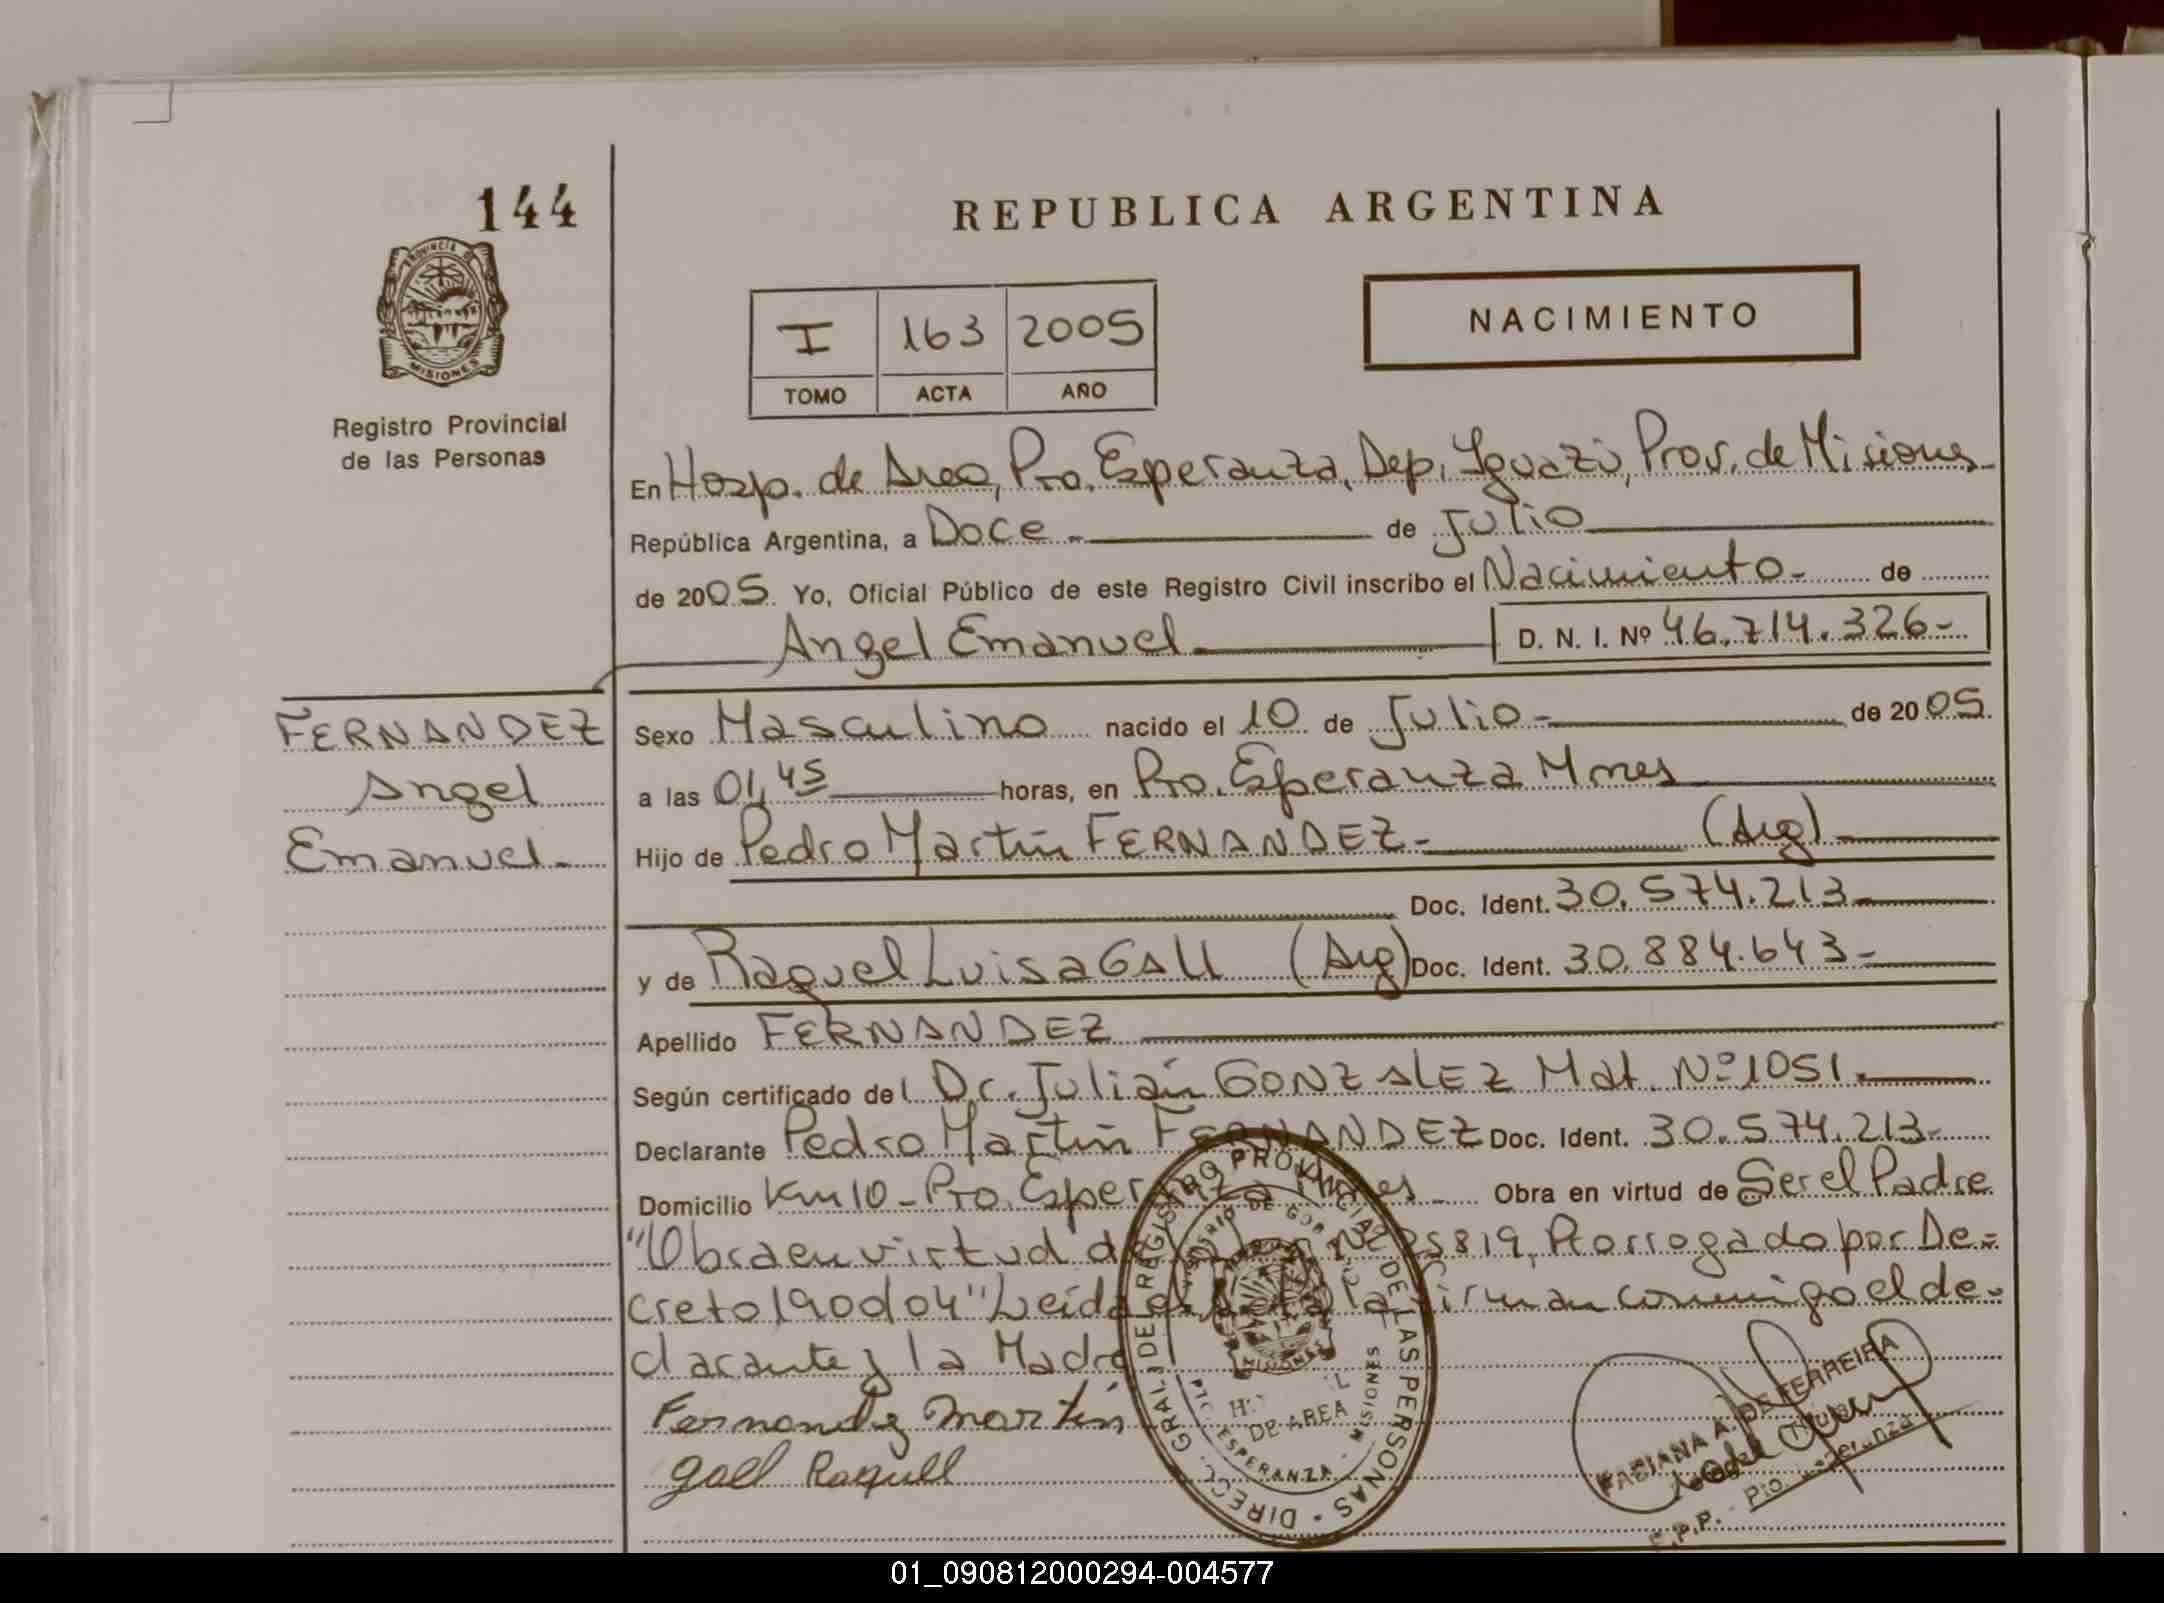 144
REPUBLICA ARGENTINA
PROVINCIA DE MISIONES
I 163 2005
TOMO ACTA AÑO
NACIMIENTO
Registro Provincial
de las Personas
En Hosp. de Area, Pto. Esperanza, Dep. Iguazú, Prov. de Misiones
República Argentina, a Doce - de Julio
de 2005. Yo, Oficial Público de este Registro Civil inscribo el Nacimiento - de
Angel Emanuel - D. N. I. Nº 46.714.326-
FERNANDEZ
Angel
Emanuel -
Sexo Masculino nacido el 10 de Julio - de 2005.
a las 01,45 horas, en Pto. Esperanza Mnes
Hijo de Pedro Martín FERNANDEZ - (Arg) -
Doc. Ident. 30.574.213 -
y de Raquel Luisa GALL (Arg) Doc. Ident. 30.884.643 -
Apellido FERNANDEZ
Según certificado del Dr. Julián GONZALEZ Mat. Nº 1051.
Declarante Pedro Martín FERNANDEZ Doc. Ident. 30.574.213-
Domicilio Km 10 - Pto. Esperanza Mnes - Obra en virtud de Ser el Padre
"Obra en virtud de Nº 25819, Prorrogado por De=
creto 1900/04" Leída el Acta la firman conmigo el de-
clarante y la Madre
Fernandez Martin
Gall Raquel
DIRECC. GRAL. DEL REGISTRO PROVINCIAL DE LAS PERSONAS
MINISTERIO DE GOB
MISIONES
DE AREA
PTO. ESPERANZA - MISIONES
FABIANA A. DE FERREIRA
Pto. Esperanza
01_090812000294-004577